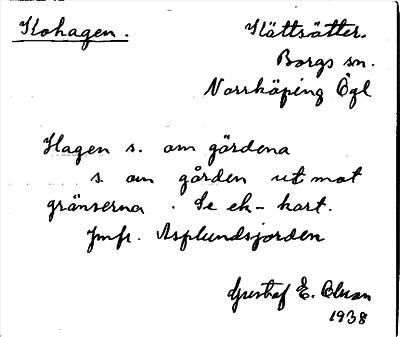 Kohagen. Slättsätter.
Borgs sn.
Norrköping Ögl
Hagen s. om gördena
s. om gården ut mot
gränserna. Se ek-kart.
Jmfr. Asplundsjorden
Gustaf E. Olsson
1938